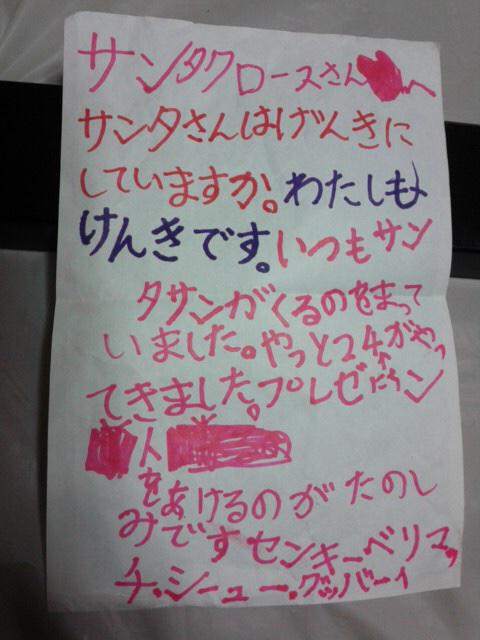 サンタクロースさんへ
サンタさんはげんきに
していますか。わたしも
けんきです。いつもサン
タサンがくるのをまって
いました。やっと24がやっ
にち
てきました。プレゼン
ト
をあけるのがたのし
みですセンキーベリマッ
チ.シーユー.グッバーイ